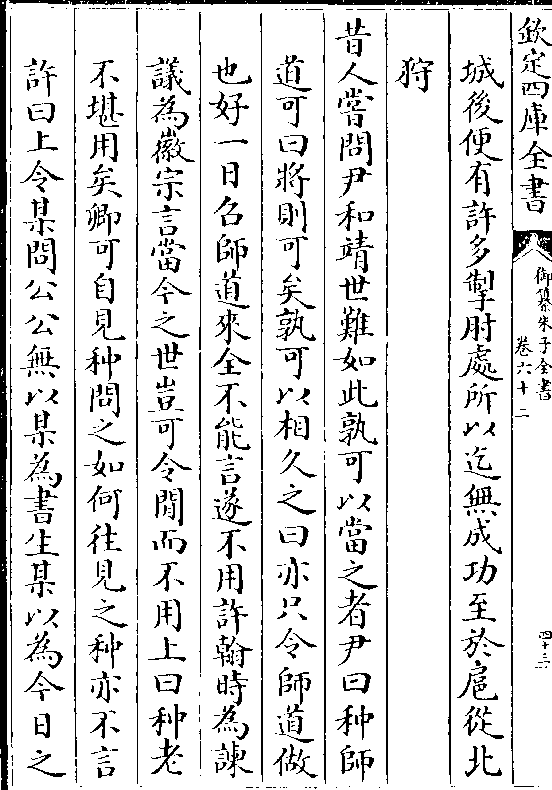 欽定四庫全書
御纂朱子全書
卷六十二
四十三
城後便有許多掣肘處所以迄無成功至於扈從北
狩
昔人嘗問尹和靖世難如此孰可以當之者尹曰种師
道可曰將則可矣孰可以相久之曰亦只令師道做
也好一日召師道來全不能言遂不用許翰時為諫
議為徽宗言當今之世豈可令閒而不用上曰种老
不堪用矣卿可自見种問之如何往見之种亦不言
許曰上令某問公公無以某為書生某以為今日之